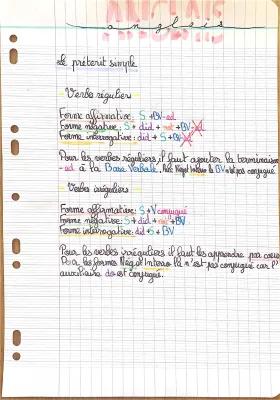 ANGLAIS
anglais
Le préterit simple
Verbe régulier
Forme affirmative : S + BV-ed
Forme négative : S + did + not + BV-ed
Forme interrogative : did + S + BV-ed
Pour les verbes réguliers il faut ajouter la terminaison
-ed à la Base Verbale, Neg Interro la BV n'est pas conjugué
Verbe irréguliers
Forme affirmative : S + V conjugué
Forme négative : S + did + not + BV
Forme interrogative : did + S + BV
Pour les verbes irréguliers il faut les apprendre par coeur
Pour les formes Nég et Interro n'est pas conjugué car l'
auxiliaire do est conjugué.